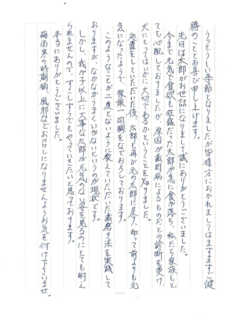 うっとうしい季節となりましたが皆様方におかれましてはますますご健
勝のこととお喜び申し上げます。
先日は太郎がお世話になりまして誠にありがとうございました。
今まで元気で食欲も旺盛だった太郎が急に食が落ち、私たち家族もと
ても心配しておりましたが、原因が歯周病によるものだとの診断を受け、
犬にとってはいかに大切であるかということを知りました。
処置をしていただいた後、太郎も再び元の太郎に戻り、却って前よりも元
気になったようで、家族一同胸をなでおろしております。
このようなことが二度とないように教えていただいた歯磨き法を実践して
おりますが、なかなかうまくいかないというのが現状です。
しかし、我が子以上に大事な太郎が元気のない姿を見るのにとても耐え
られませんので、すこしずつでもやっていきたいと思っております。
本当にありがとうございました。
梅雨寒の時節柄、風邪などお召しになりませんようお気を付け下さいませ。